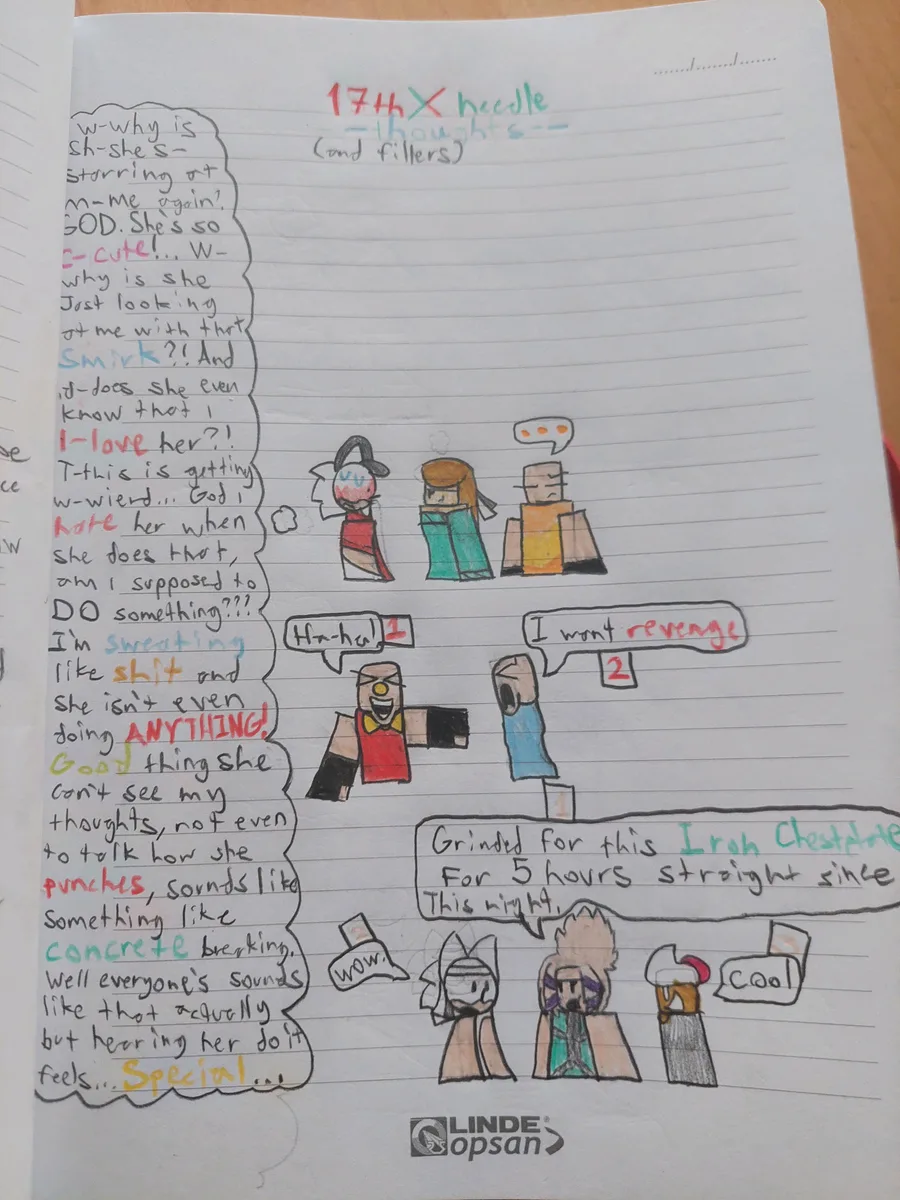 17th X needle
-thoughts--
(and fillers)
......./......./.......
w-why is
sh-she's-
starring at
m-me again?
GOD. She's so
c-cute!... W-
why is she
Just looking
at me with that
Smirk?! And
d-does she even
know that i
I-love her?!
T-this is getting
w-wierd... God i
hate her when
she does that,
am i supposed to
DO something???
I'm sweating
like shit and
she isn't even
doing ANYTHING!
Good thing she
can't see my
thoughts, not even
to talk how she
punches, sounds like
something like
concrete breaking.
Well everyone's sounds
like that actually
but hearing her do it
feels... Special...
...
Ha-ha!
1
I want revenge
2
1
Grinded for this Iron Chestplate
For 5 hours straight since
This night.
2
wow.
3
Cool
LINDE
opsan